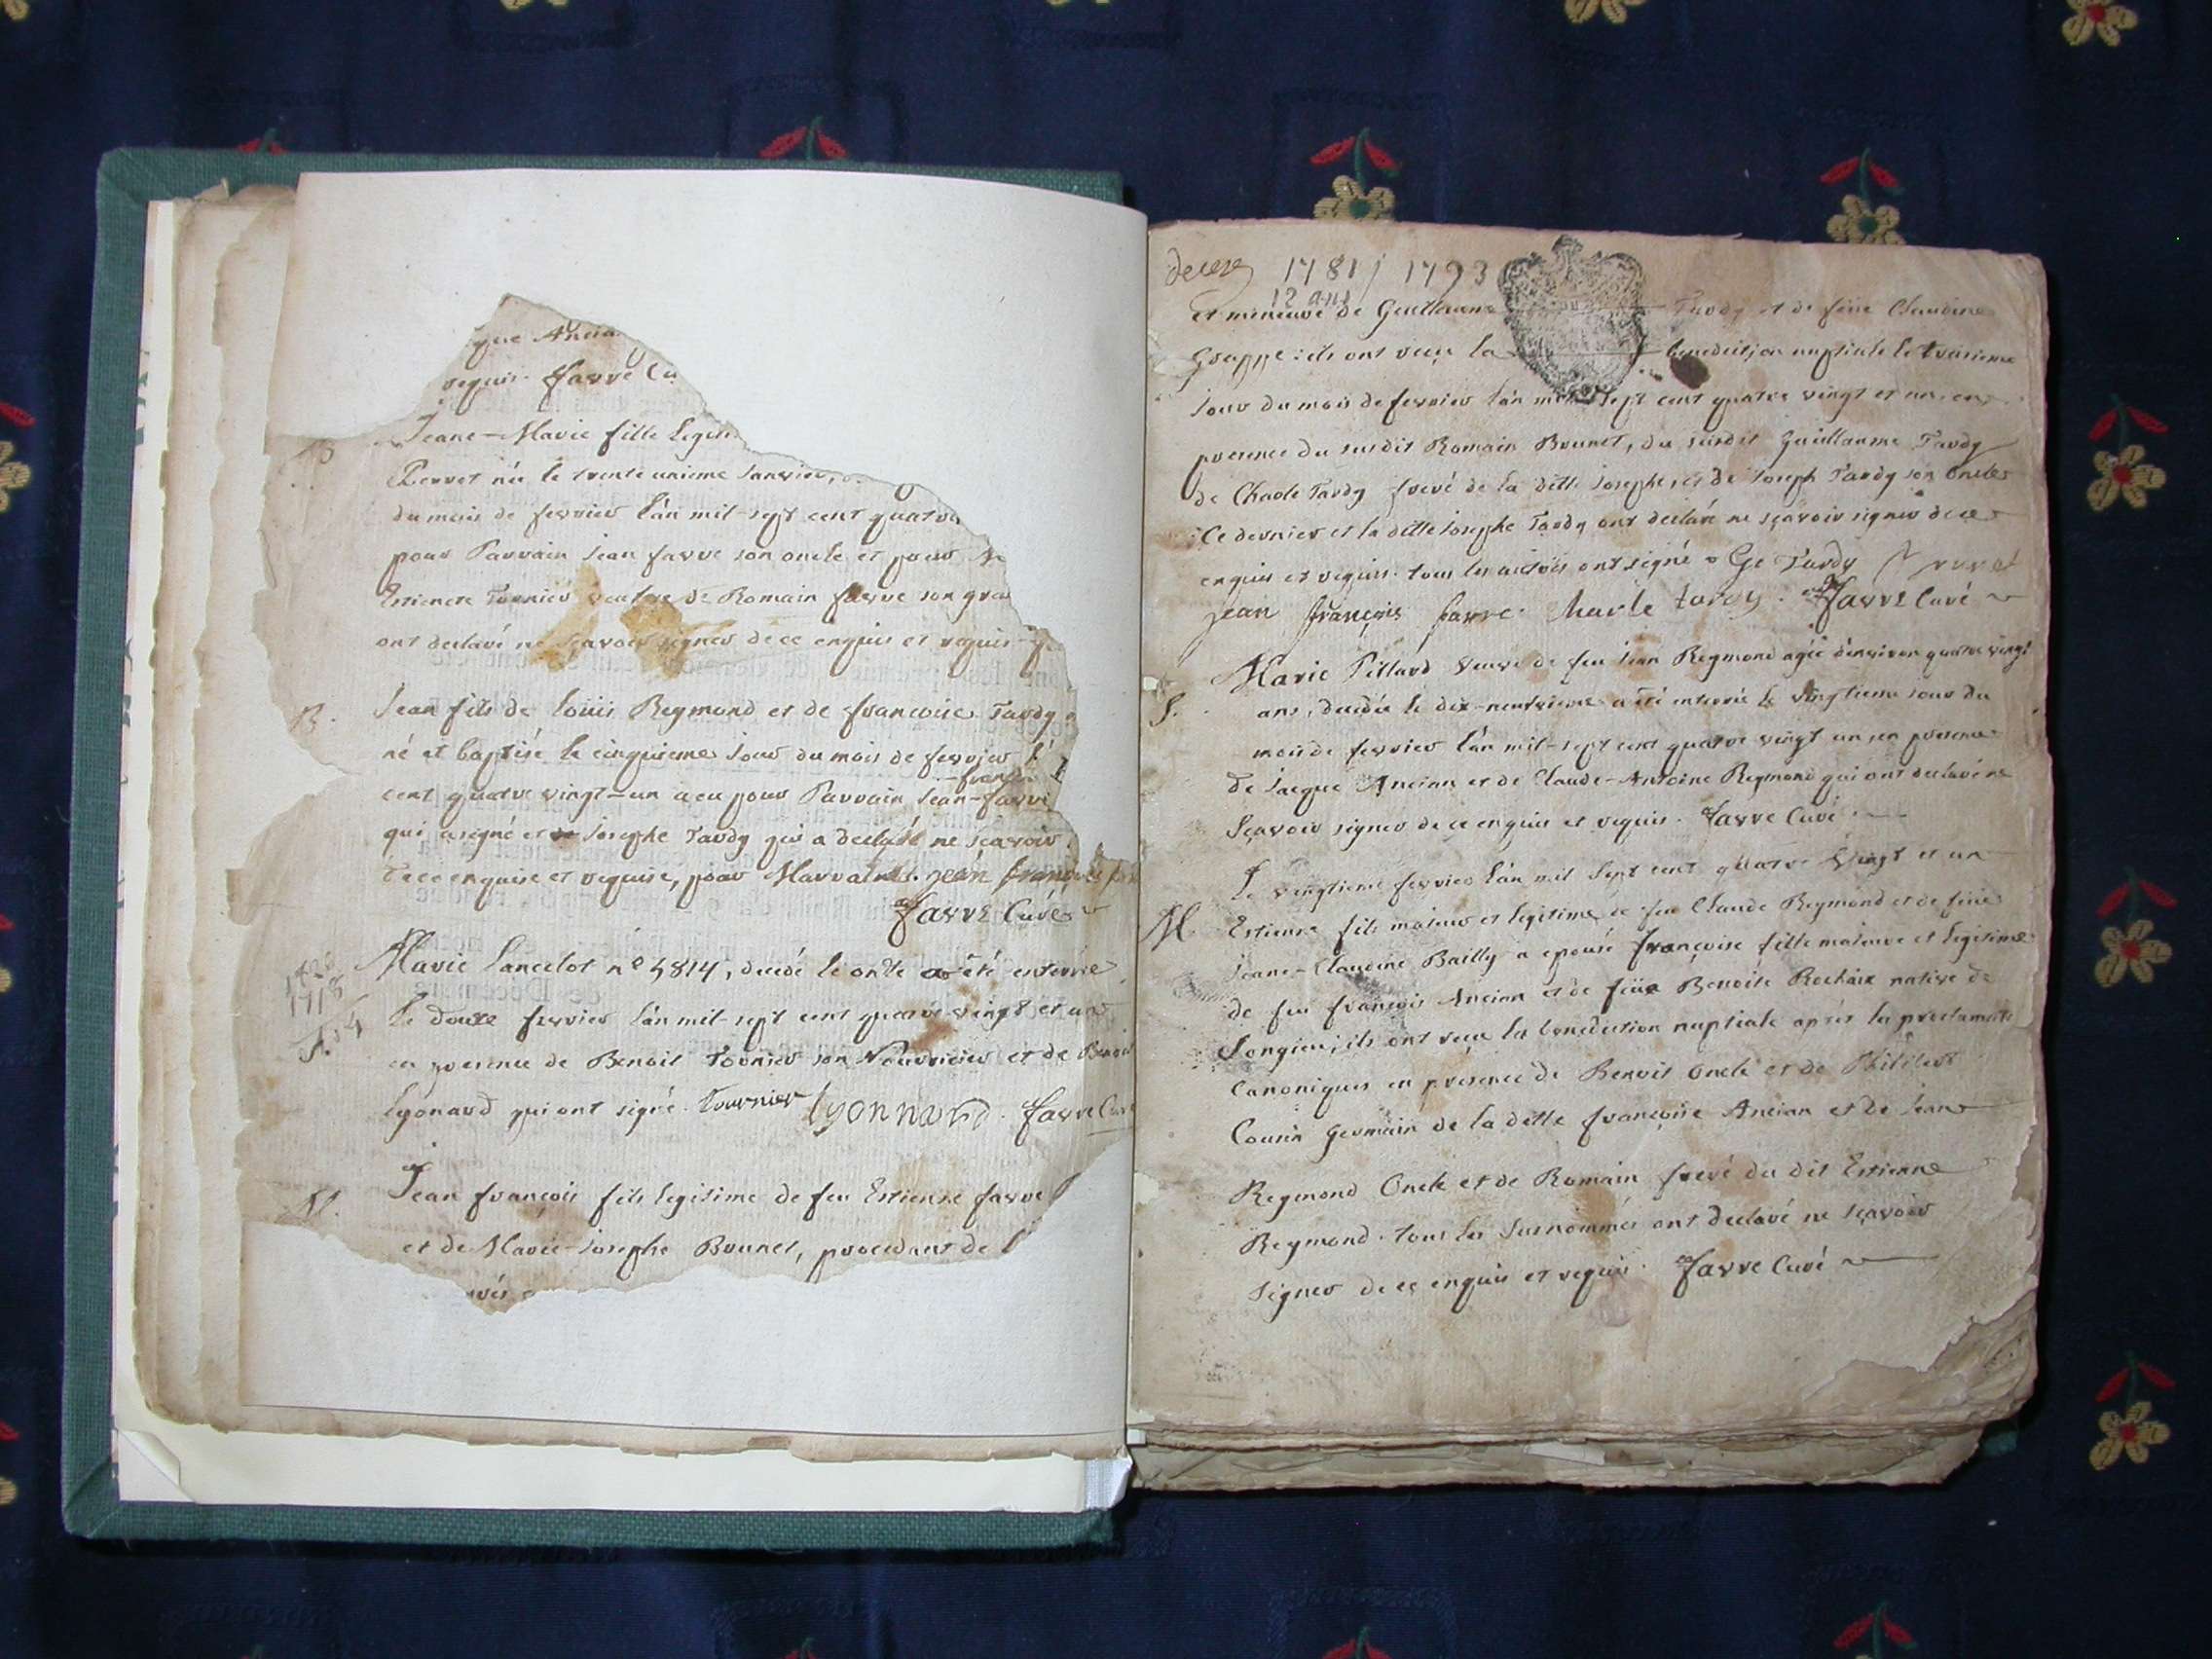 que Ancia
requis. favre Cu
B
Jeane-Marie fille legit
Perret née le trente unieme Janvier,
du mois de fevrier l'an mil-sept cent quatre
pour Parrain Jean favre son oncle et pour
Estienete Tornier veufve de Romain favre son gra
ont declaré ne sçavoir signer de ce enquis et requis
B.
Jean fils de louis Reymond et de francoise Tardy
né et baptisé le cinquieme Jour du mois de fevrier l'
francois
cent quatre vingt-un a eu pour Parrain Jean-favre
qui a signé et Josephe Tardy qui a declaré ne sçavoir
de ce enquise et requise, pour Marraine. jean françois
favre Curé
Marie Lancelot n° 4814, decedé le onze a été enterrée
1718
S.
le douze fevrier l'an mil-sept cent quatre vingt et un
en presence de Benoit Tornier son Nourricier et de Benoit
lyonard qui ont signé. tournier lyonnard. favre Curé
M.
Jean françois fils legitime de feu Estienne favre
et de Marie-Josephe Brunet, procedant de l'
deces 1781 / 1793
12 ans
et mineure de Guillaume Tardy et de feüe Claudine
Grappe: ils ont reçu la benediction nuptiale le troisieme
Jour du mois de fevrier l'an mil sept cent quatre vingt et un, en
presence du susdit Romain Brunet, du susdit Guillaume Tardy
de Charle Tardy frere de la ditte Josephe, et de Joseph Tardy son Oncle
Ce dernier et la ditte Josephe Tardy ont declaré ne sçavoir signer de ce
enquis et requis. tous les autres ont signé Ge Tardy Brunet
jean françois favre. Charle tardy. favre Curé
S.
Marie Pillard veuve de feu Jean Reymond agée d'environ quatre vingt
ans, decedée le dix-neuvieme a été enterrée le vingtieme jour du
mois de fevrier l'an mil-sept cent quatre vingt un en presence
de Jacque Ancian et de Claude-Antoine Reymond qui ont declaré ne
Sçavoir signer de ce enquis et requis. favre Curé
Le vingtieme fevrier l'an mil Sept cent quatre vingt et un
M
Estienne fils majeur et legitime de feu Claude Reymond et de feüe
Jeane-Claudine Bailly a epousé françoise fille majeure et legitime
de feu françois Ancian et de feüe Benoite Rochaix native de
Songieu; ils ont reçu la benediction nuptiale après les proclamations
Canoniques en presence de Benoit Oncle et de Philibert
Cousin germain de la ditte françoise Ancian et de Jean
Reymond Oncle et de Romain frere du dit Estienne
Reymond. tous les Susnommés ont declaré ne sçavoir
Signer de ce enquis et requis. favre Curé